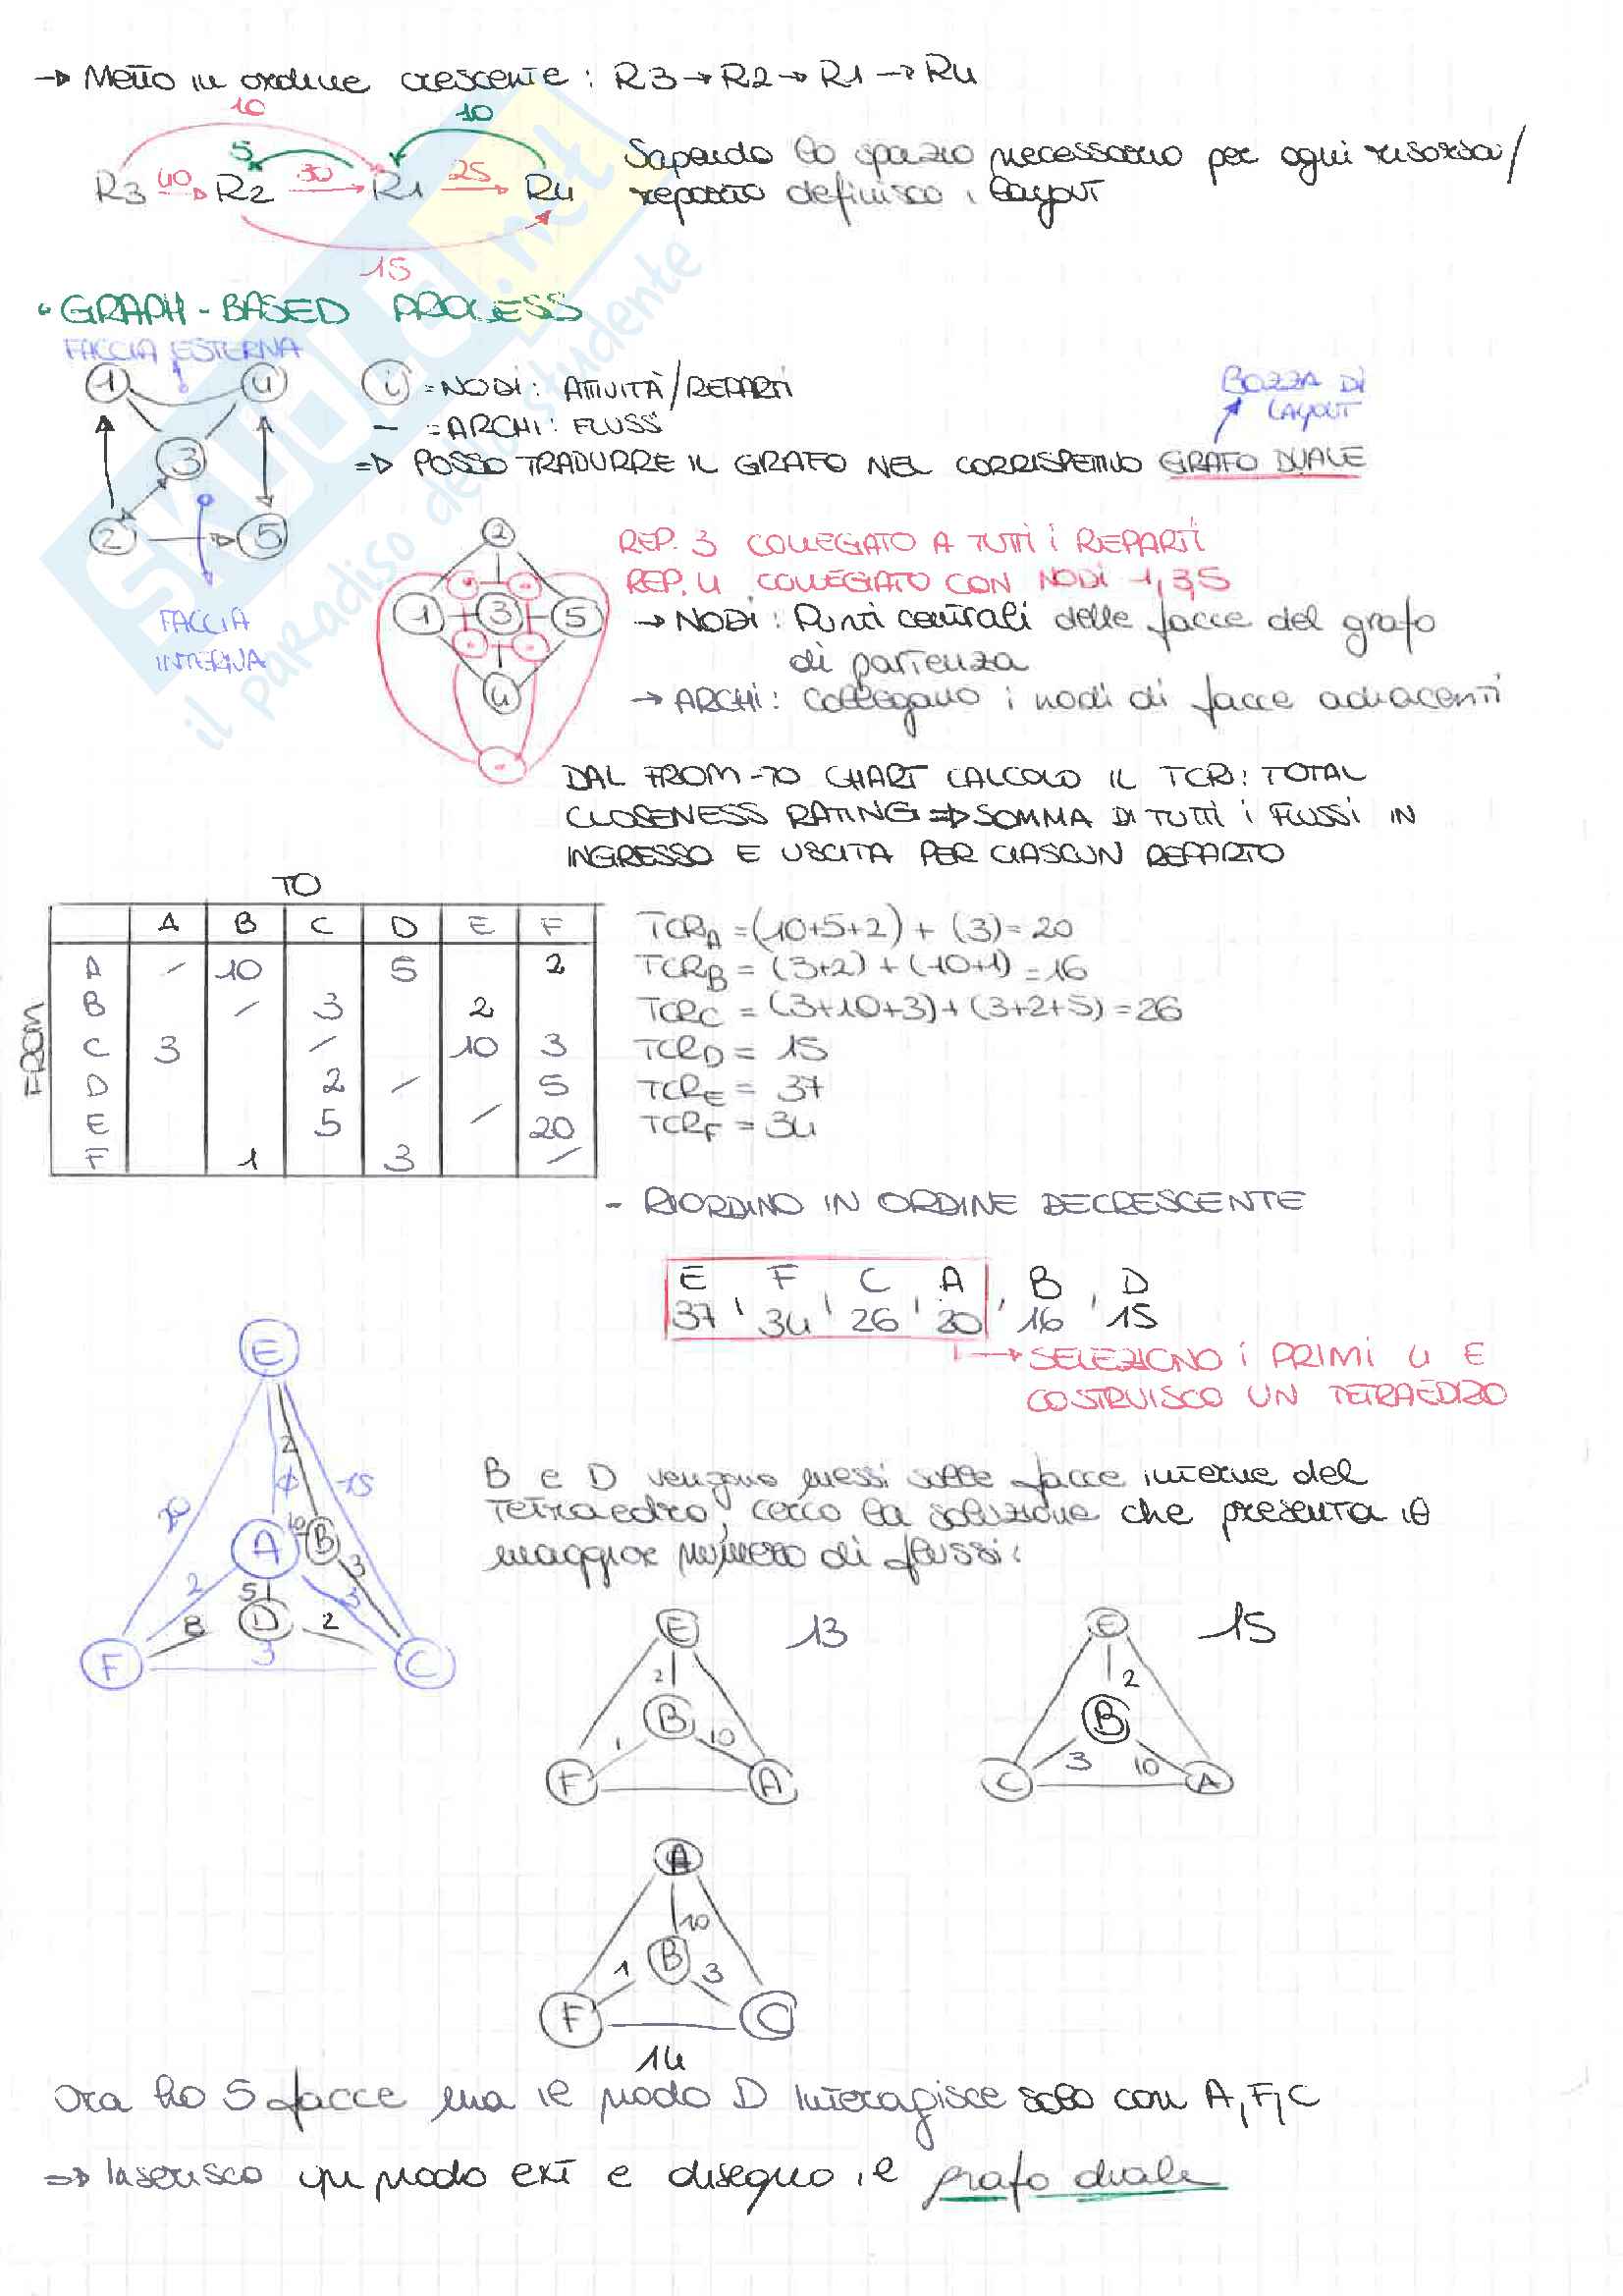 → Metto in ordine crescente : R3 → R2 → R1 → R4
10
10
5
R3 40 R2 30 R1 25 R4
15
Sapendo lo spazio necessario per ogni risorsa/
reparto definisco i layout
• GRAPH - BASED PROCESS
FACCIA ESTERNA
1 4 3 2 5
FACCIA
INTERNA
i = NODI : ATTIVITÀ/REPARTI
— = ARCHI : FLUSSI
BOZZA DI
LAYOUT
=> POSSO TRADURRE IL GRAFO NEL CORRISPETTIVO GRAFO DUALE
2
1 3 5
4
REP. 3 COLLEGATO A TUTTI i REPARTI
REP. 4 COLLEGATO CON NODI 1,3,5
→ NODI : Punti centrali delle facce del grafo
di partenza
→ ARCHI : Collegano i nodi di facce adiacenti
DAL FROM-TO CHART CALCOLO IL TCR : TOTAL
CLOSENESS RATING => SOMMA DI TUTTI i FLUSSI IN
INGRESSO E USCITA PER CIASCUN REPARTO
TO
FROM
A B C D E F
A / 10 5 2
B / 3 2
C 3 / 10 3
D 2 / 5
E 5 / 20
F 1 3 /
TCRA = (10+5+2) + (3) = 20
TCRB = (3+2) + (10+1) = 16
TCRC = (3+10+3) + (3+2+5) = 26
TCRD = 15
TCRE = 37
TCRF = 34
- RIORDINO IN ORDINE DECRESCENTE
E , F , C , A , B , D
37 34 26 20 16 15
→ SELEZIONO i PRIMI 4 E
COSTRUISCO UN TETRAEDRO
E
2
20 ϕ 15
A 10 B
2 5 3 3
8 D 2
F 3 C
B e D vengono messi sulle facce interne del
tetraedro, cerco la soluzione che presenta il
maggior numero di flussi:
E 13
2
B
1 10
F A
E 15
2
B
3 10
C A
A
10
B
1 3
F C
14
Ora ho 5 facce ma il nodo D interagisce solo con A,F,C
=> Inserisco un nodo ext e disegno il grafo duale
SKUOLA.net
il paradiso dello studente